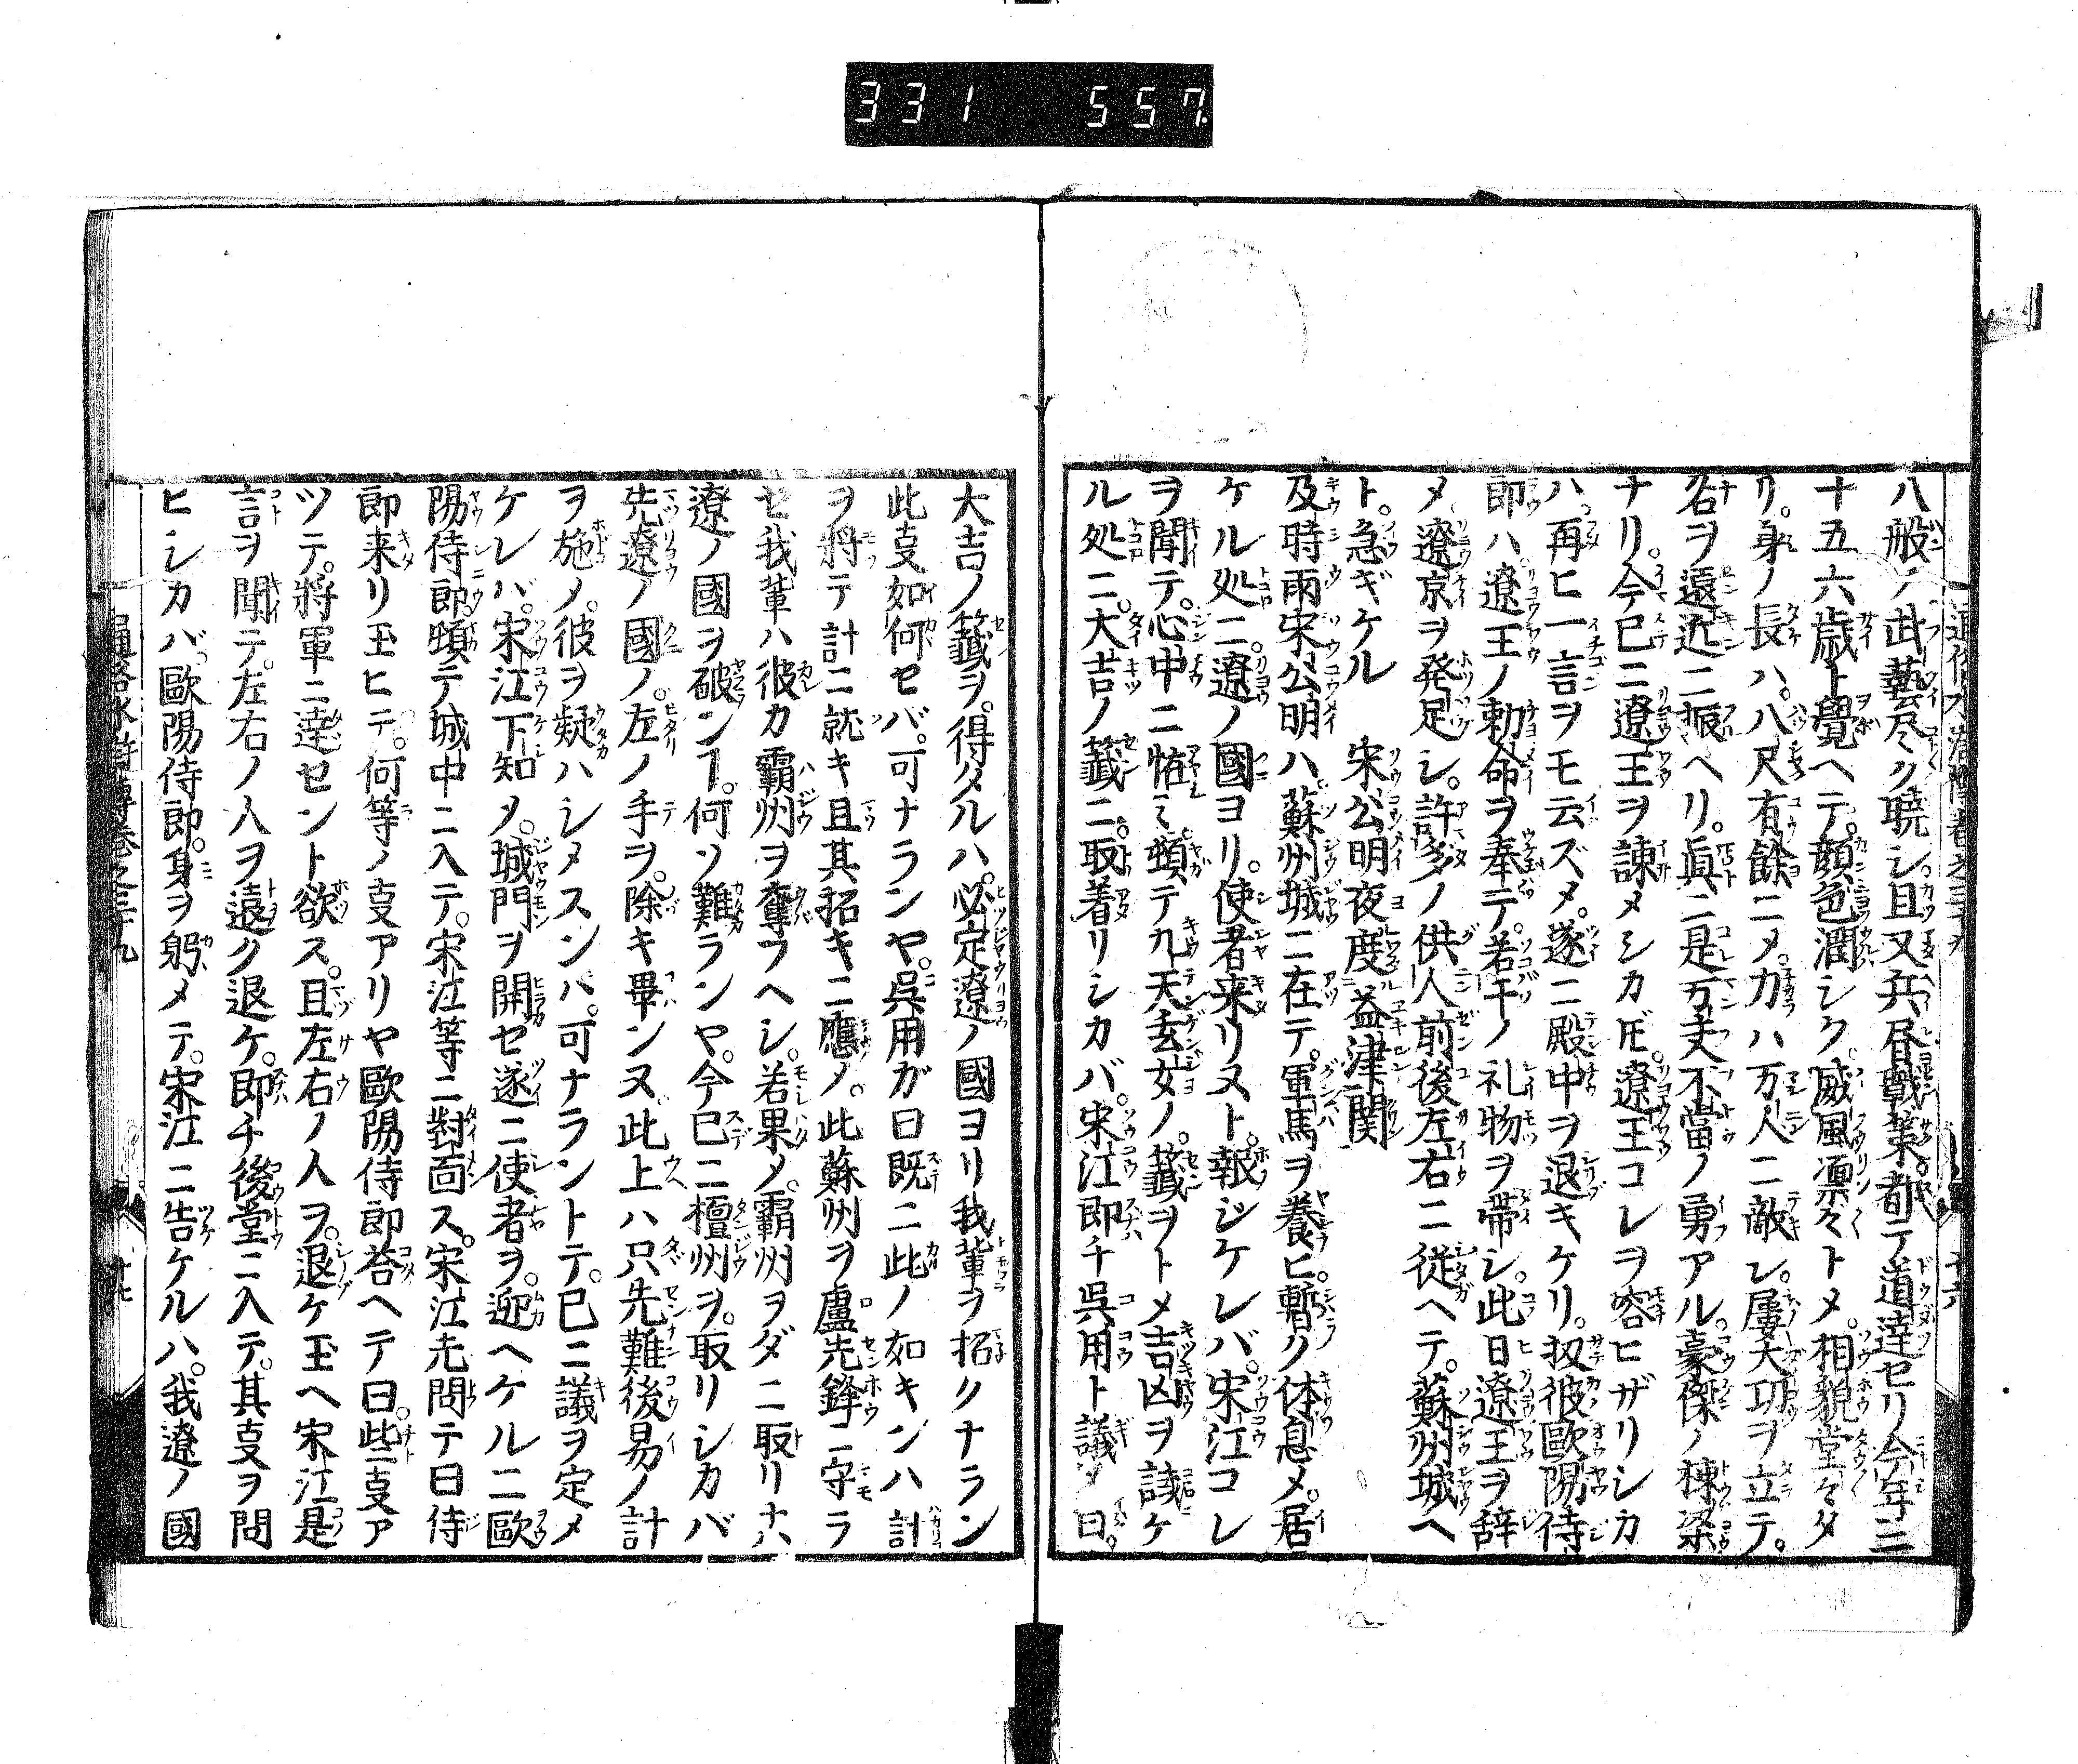 331 557
八般ノ武藝尽ク曉シ且又兵昏戰策都テ道達セリ今年二
十五六歳ト覺ヘテ。顔色潤シク。威風凛々トメ。相貌堂々タ
リ。身ノ長ハ。八尺有餘ニメ。力ハ万人ニ敵シ。屢大功ヲ立テ。
名ヲ遠近ニ振ヘリ。眞ニ是万夫不當ノ勇アル。豪傑ノ棟梁
ナリ。今已ニ遼王ヲ諌メシカ𪜈。遼王コレヲ容ヒザリシカ
ハ。再ヒ一言ヲモ云ズメ。遂ニ殿中ヲ退キケリ。扨彼歐陽侍
郎ハ。遼王ノ勅命ヲ奉テ。若干ノ礼物ヲ帶シ。此日遼王ヲ辞
メ遼京ヲ発足シ。許多ノ供人前後左右ニ從ヘテ。蘇州城ヘ
ト。急ギケル　宋公明夜度益津関
及時雨宋公明ハ。蘇州城ニ在テ。軍馬ヲ養ヒ。暫ク休息メ。居
ケル処ニ。遼ノ國ヨリ。使者来リヌト。報ジケレバ。宋江コレ
ヲ聞テ。心中ニ恠ミ。頓テ九天玄女ノ。籤ヲトメ吉凶ヲ試ケ
ル処ニ。大吉ノ籤ニ。取着リシカバ。宋江即チ呉用ト議メ曰。
大吉ノ籤ヲ。得タルハ。必定遼ノ國ヨリ我輩ヲ招クナラン
此叓如何セバ。可ナランヤ。呉用ガ曰既ニ此ノ如キンハ計
ヲ將テ計ニ就キ且其招キニ應ノ。此蘇州ヲ盧先鋒ニ守ラ
セ我輩ハ彼カ霸州ヲ奪フヘシ。若果メ。霸州ヲダニ取リナハ
遼ノ國ヲ破ンヿ。何ソ難ランヤ。今已ニ檀州ヲ。取リシカバ
先遼ノ國ノ。左ノ手ヲ。除キ畢ンヌ。此上ハ只先難後易ノ計
ヲ施メ。彼ヲ疑ハシメスンハ。可ナラントテ。已ニ議ヲ定メ
ケレバ。宋江下知メ。城門ヲ開セ遂ニ使者ヲ。迎ヘケルニ歐
陽侍郎頓テ城中ニ入テ。宋江等ニ對面ス。宋江先問テ曰侍
郎来リ玉ヒテ。何等ノ叓アリヤ歐陽侍郎荅ヘテ曰。些叓ア
ツテ。將軍ニ達セント欲ス。且左右ノ人ヲ。退ケ玉ヘ宋江是
言ヲ聞テ。左右ノ人ヲ遠ク退ケ。即チ後堂ニ入テ。其叓ヲ問
ヒシカバ。歐陽侍郎。身ヲ躬メテ。宋江ニ告ケルハ。我遼ノ國
通俗水滸傳巻之三十九